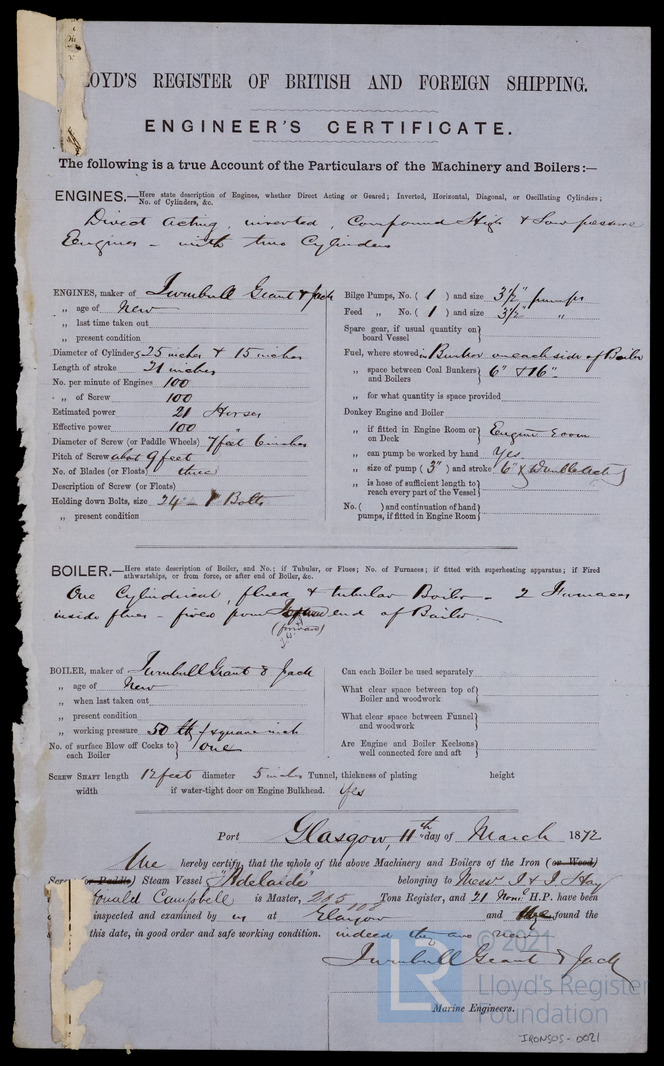 LOYD'S REGISTER OF BRITISH AND FOREIGN SHIPPING.
ENGINEER'S CERTIFICATE.
The following is a true Account of the Particulars of the Machinery and Boilers:—
ENGINES.—Here state description of Engines, whether Direct Acting or Geared; Inverted, Horizontal, Diagonal, or Oscillating Cylinders;
No. of Cylinders, &c.
Direct acting, inverted, Compound High & Low pressure
Engines – with two Cylinders
ENGINES, maker of Turnbull Grant & Jack
„ age of New
„ last time taken out
„ present condition
Diameter of Cylinders 25 inches & 15 inches
Length of stroke 21 inches
No. per minute of Engines 100
„ of Screw 100
Estimated power 21 Horses
Effective power 100 „
Diameter of Screw (or Paddle Wheels) 7 feet 6 inches
Pitch of Screw about 9 feet
No. of Blades (or Floats) three
Description of Screw (or Floats)
Holding down Bolts, size 24 – 1" Bolts
„ present condition
Bilge Pumps, No. ( 1 ) and size 3½" pumps
Feed „ No. ( 1 ) and size 3½" „
Spare gear, if usual quantity on
board Vessel
Fuel, where stowed in Bunker on each side of Boiler
„ space between Coal Bunkers
and Boilers 6" & 16"
„ for what quantity is space provided
Donkey Engine and Boiler
„ if fitted in Engine Room or
on Deck Engine Room
„ can pump be worked by hand Yes
„ size of pump ( 3" ) and stroke 6" (Double Acting)
„ is hose of sufficient length to
reach every part of the Vessel
No. ( ) and continuation of hand
pumps, if fitted in Engine Room
BOILER.—Here state description of Boiler, and No.; if Tubular, or Flues; No. of Furnaces; if fitted with superheating apparatus; if Fired
athwartships, or from force, or after end of Boiler, &c.
One Cylindrical, flued & tubular Boiler – 2 Furnaces
inside flues – fired from end of Boiler.
(forward)
BOILER, maker of Turnbull Grant & Jack
„ age of New
„ when last taken out
„ present condition
„ working pressure 50 lbs / square inch
No. of surface Blow off Cocks to
each Boiler one
Can each Boiler be used separately
What clear space between top of
Boiler and woodwork
What clear space between Funnel
and woodwork
Are Engine and Boiler Keelsons
well connected fore and aft
SCREW SHAFT length 12 feet diameter 5 inches Tunnel, thickness of plating height
width if water-tight door on Engine Bulkhead. Yes
Port Glasgow, 11th day of March 1872
We hereby certify, that the whole of the above Machinery and Boilers of the Iron (or Wood)
Screw (or Paddle) Steam Vessel "Adelaide" belonging to Messrs J & J Hay
Donald Campbell is Master, 205 Tons Register, and 21 Nom! H.P. have been
inspected and examined by us at Glasgow and found the
this date, in good order and safe working condition. indeed they are new
Turnbull Grant & Jack
Marine Engineers.
© 2021
LR
Lloyd's Register
Foundation
IRONSOS-0021